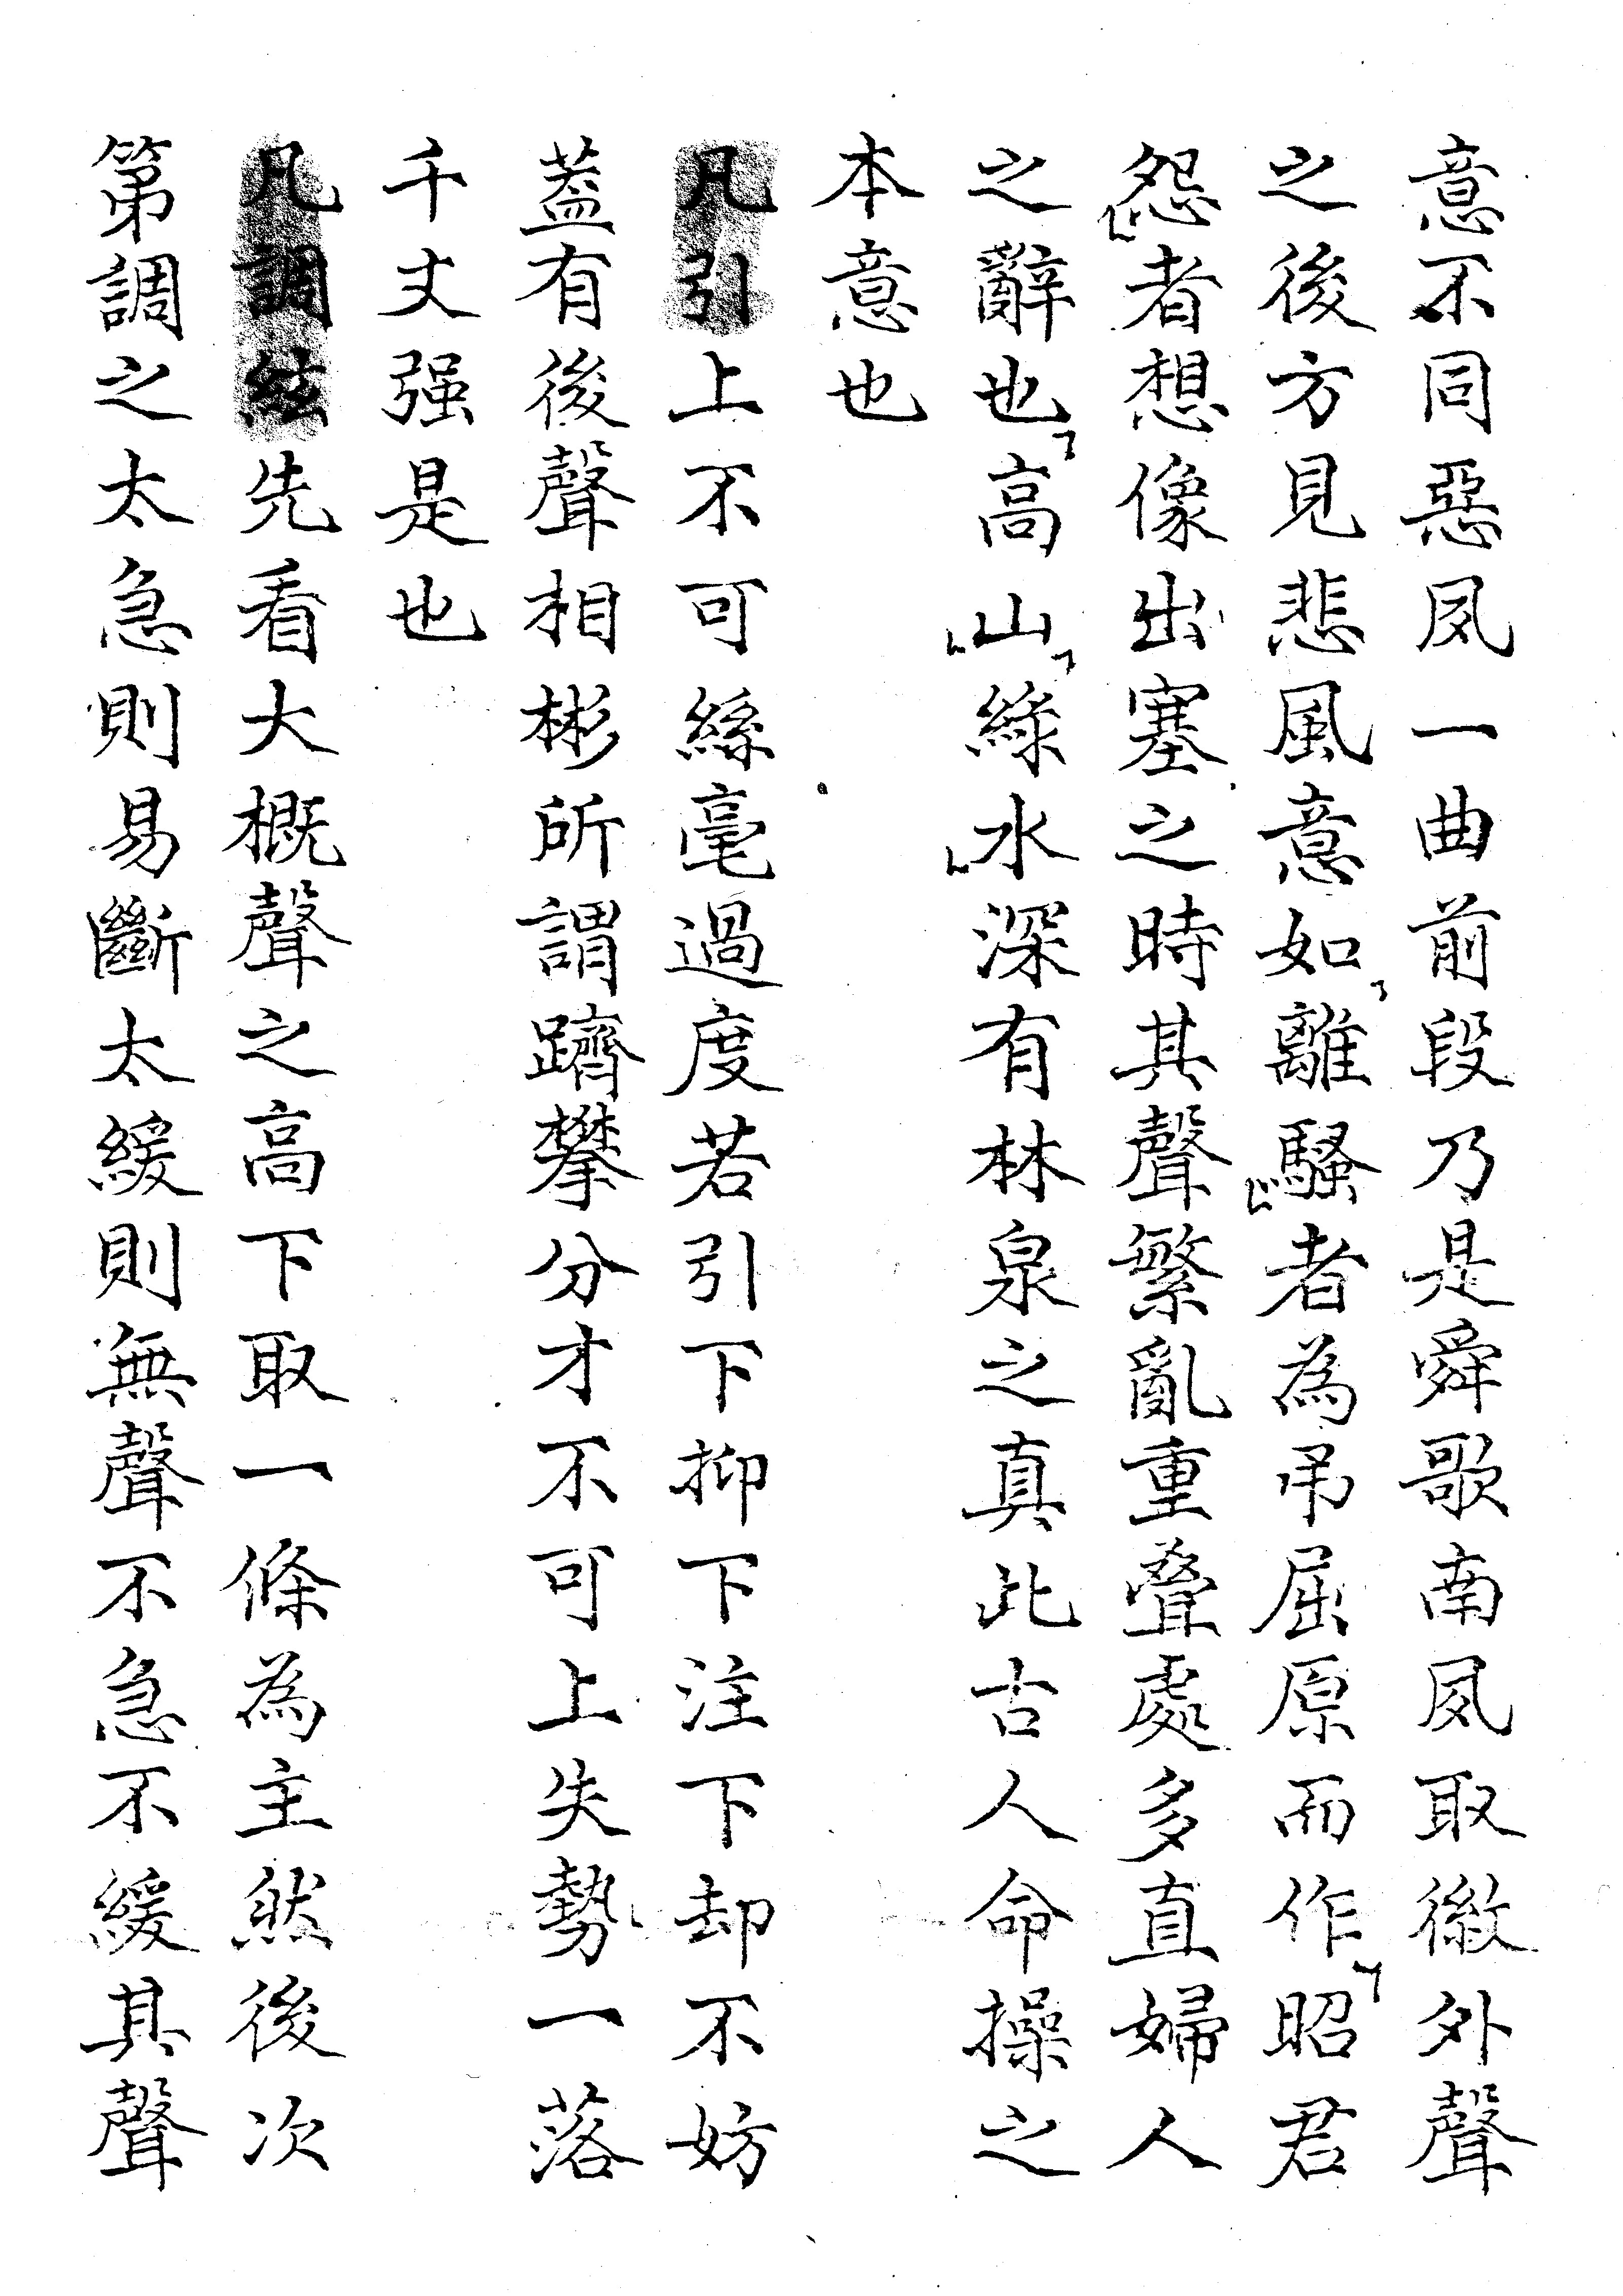 意不同惡凨一曲前段乃是舜歌南凨取徵外聲
之後方見悲風意如離騷者為吊屈原而作昭君
怨者想像出塞之時其聲繁亂重疊處多直婦人
之辭也高山綠水深有林泉之真此古人命操之
本意也
凡引上不可絲毫過度若引下抑下注下却不妨
葢有後聲相彬所謂躋攀分才不可上失勢一落
千丈强是也
凡調絃先看大概聲之高下取一條為主然後次
第調之太急則易斷太緩則無聲不急不緩其聲